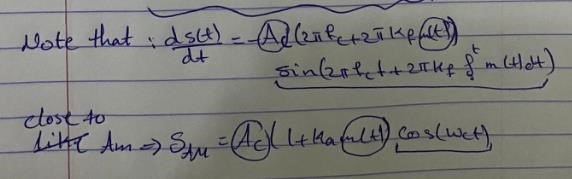 Note that : ds(t)/dt = -Ac(2πfc+2πKf m(t))
sin(2πfct+2πKf ∫₀ᵗ m(t)dt)
close to
like Am ⇒ SAM = Ac(1+Ka m(t)) cos(wct)